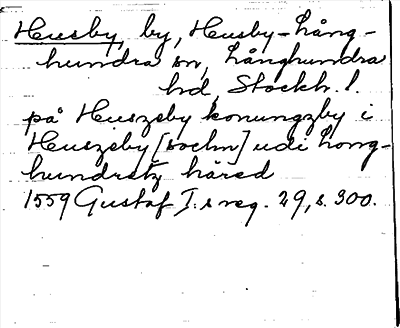 Husby, by, Husby-Lång-
hundra sn, Långhundra
hd, Stockh. l.
på Huszeby konungzby i
Huszeby [sochn] udi Long-
hundretz häred
1559 Gustaf I:s reg. 29, s. 300.